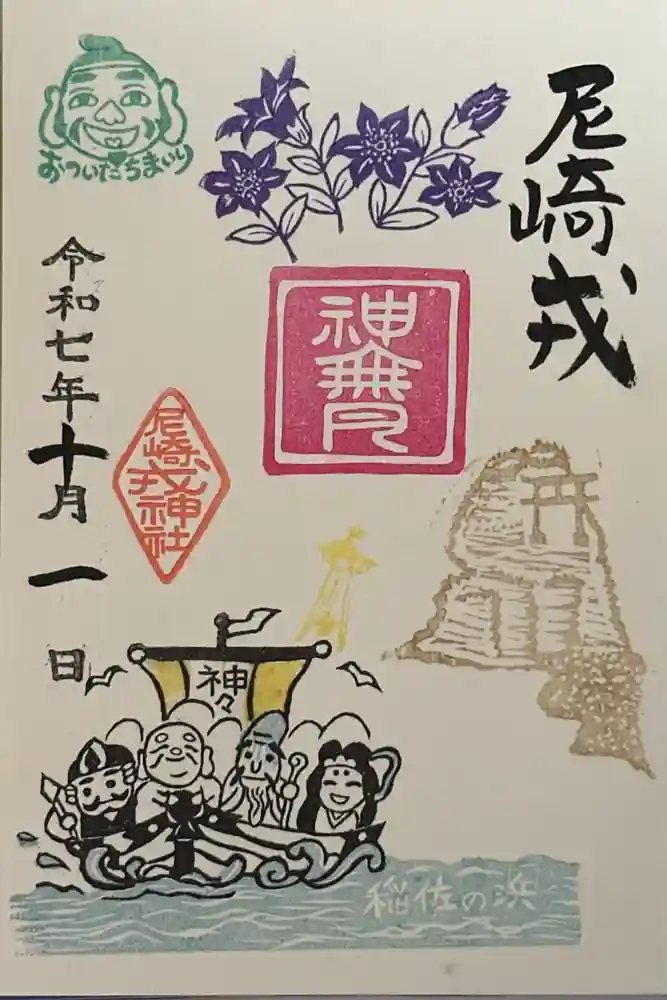 尼崎戎
おついたちまいり
神無月
令和七年十月一日
尼崎戎神社
神々
稲佐の浜